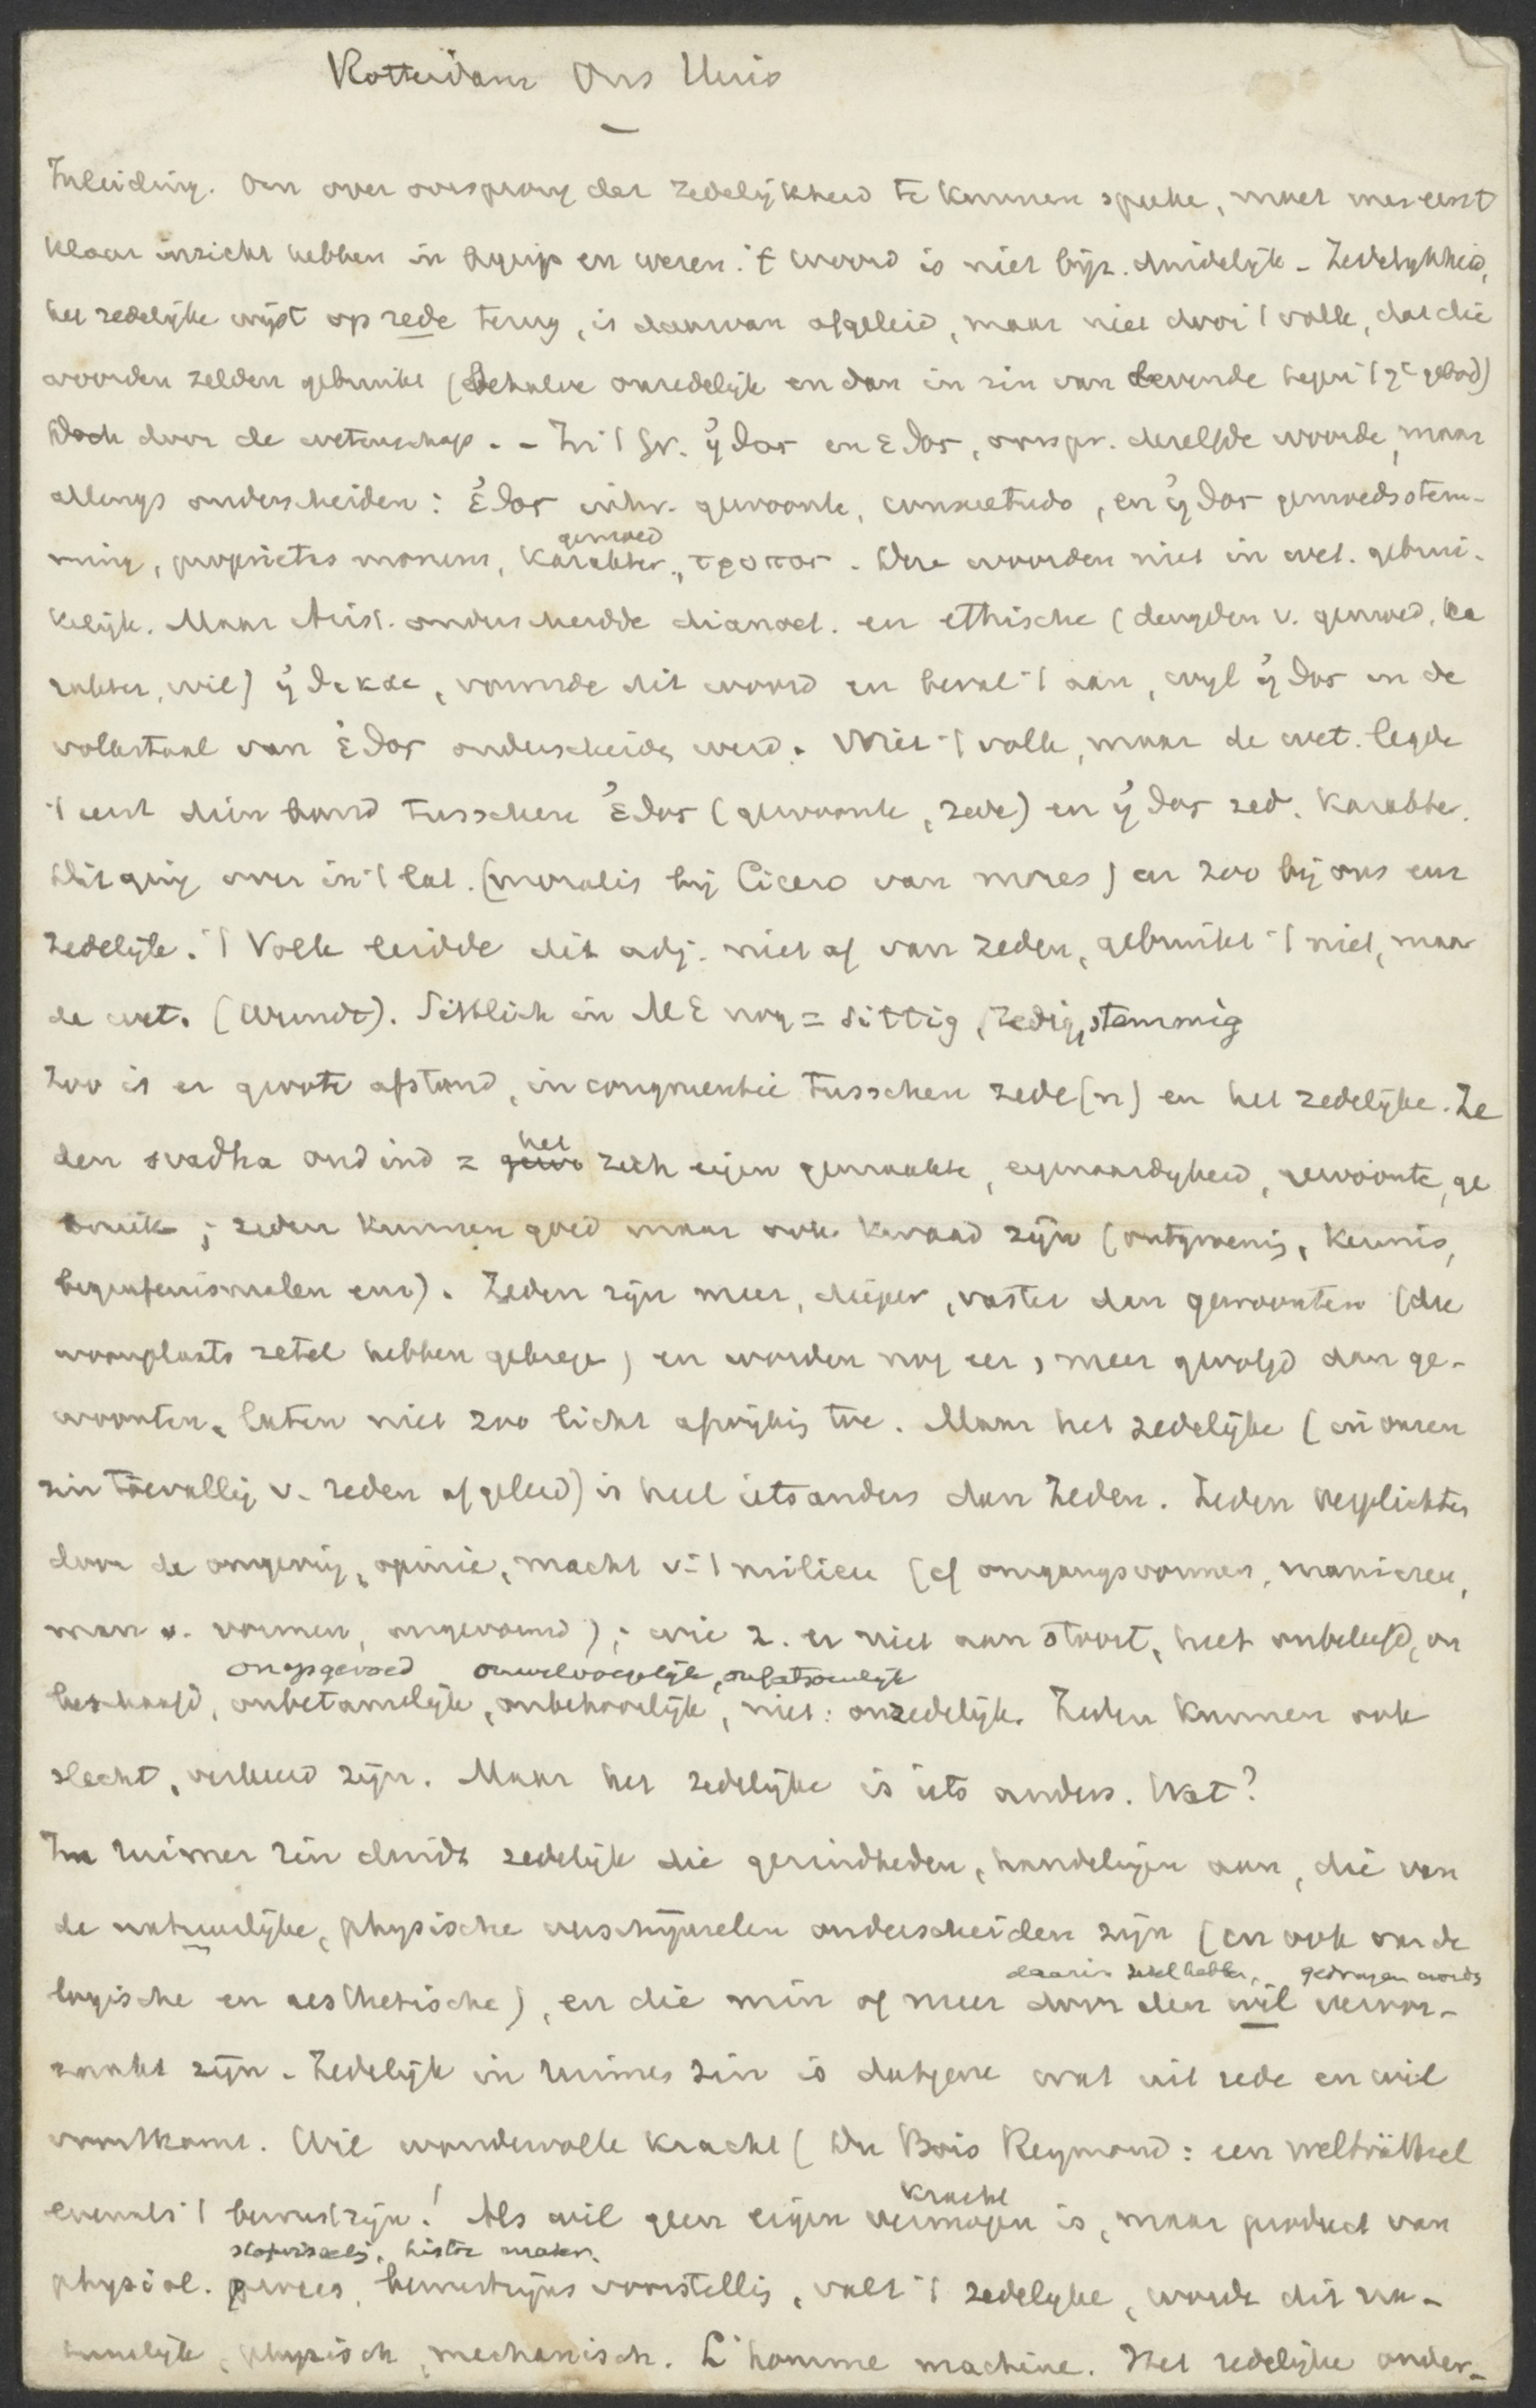 Rotterdam Ons Huis
Inleiding. Om over oorsprong der zedelijkheid te kunnen spreke, moet men eerst
klaar inzicht hebben in begrip en wezen. 't woord is niet bijz. duidelijk - Zedelijkheid,
het zedelijke wijst op zede terug, is daarvan afgeleid, maar niet door 't volk, dat die
woorden zelden gebruikt (behalve onzedelijk en dan in zin van levende tegen 't 7e gebod)
doch door de wetenschap. - In 't Gr. ἠθος en εθος, oorspr. dezelfde woorde, maar
allengs onderscheiden: ἐθος gewoonte, consuetudo, en ἠθος gemoedsstem-
gemoed
ming, proprietas morum, Karakter, τροπος. Deze woorden niet in wet. gebrui-
kelijk. Maar Arist. onderscheidde dianoet. en ethische (deugden v. gemoed, ka
rakter, wil) ἠθικαι, vormde dit woord en beval 't aan, wijl ἠθος in de
volkstaal van ἐθος onderscheide werd. Niet 't volk, maar de wet. legde
't eerst dien band tusschen ἐθος (gewoonte, zede) en ἠθος zed. karakter.
Dit ging over in 't Lat. (moralis bij Cicero van mores) en zoo bij ons en
zedelijk. 't Volk leidde dit adj. niet af van zeden, gebruikt 't niet, maar
de wet. (Wundt). Sittlich in ME nog = sittig, zedig, stemmig
Zoo is er groote afstand, incongruentie tusschen zede(n) en het zedelijke. Ze
het
den svadha oud ind = gewo zich eigen gemaakte, eigenaardigheid, gewoonte, ge
bruik; zeden kunnen goed maar ook kwaad zijn (ontgroening, kermis,
begrafenismalen enz). Zeden zijn meer, dieper, vaster dan gewoonten (die
woonplaats zetel hebben gekrege) en worden nog eer, meer gevolgd dan ge-
woonten, laten niet zoo licht afwijking toe. Maar het zedelijke (in onzen
zin toevallig v. zeden afgeleid) is heel iets anders dan Zeden. Zeden verplichten
door de omgeving, opinie, macht v. 't milieu (cf omgangsvormen, manieren,
man v. vormen, ongevormd); wie z. er niet aan stoort, heet onbeleefd, on
onopgevoed onwelvoegelijk, onfatsoenlijk
beschaafd, onbetamelijk, onbehoorlijk, niet: onzedelijk. Zeden kunnen ook
slecht, verkeerd zijn. Maar het zedelijke is iets anders. Wat?
In ruimer zin duidt zedelijk die gezindheden, handelingen aan, die van
de natuurlijke, physische verschijnselen onderscheiden zijn (en ook van de
daarin zetel hebben, gedragen worde
logische en aesthetische), en die min of meer door den wil veroor-
zaakt zijn. Zedelijk in ruimer zin is datgene wat uit rede en wil
voortkomt. Wil wondervolle kracht (Du Bois Reymond: een Welträthsel
kracht
evenals 't bewustzijn! Als wil geen eigen vermogen is, maar product van
stofwisseling, histor. mater.
physiol. proces, bewustzijns voorstelling, valt 't zedelijke, wordt dit na-
tuurlijk, physisch, mechanisch. L'homme machine. Het zedelijke onder-